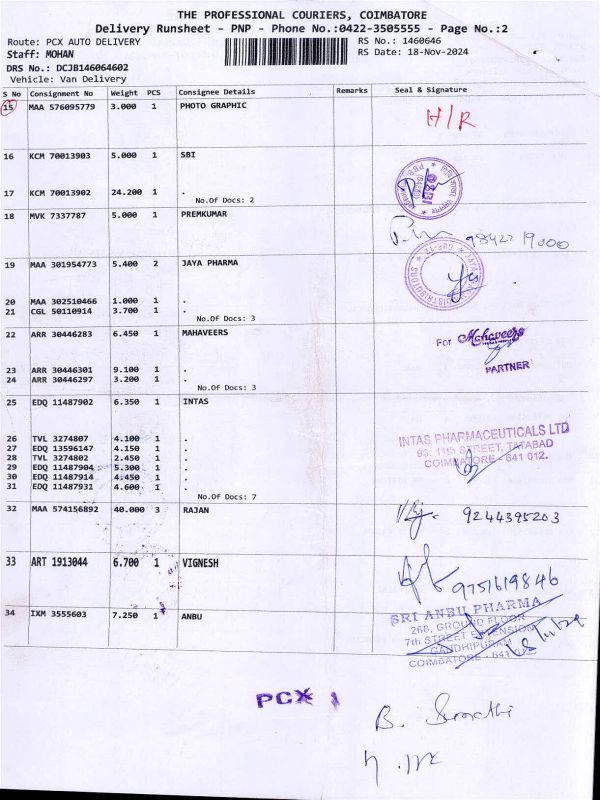 THE PROFESSIONAL COURIERS, COIMBATORE
Delivery Runsheet - PNP - Phone No.:0422-3505555 - Page No.:2
Route: PCX AUTO DELIVERY RS No.: 1460646
Staff: MOHAN RS Date: 18-Nov-2024
DRS No.: DCJB146064602
Vehicle: Van Delivery
S No Consignment No Weight PCS Consignee Details Remarks Seal & Signature
15 MAA 576095779 3.000 1 PHOTO GRAPHIC H/R
16 KCM 70013903 5.000 1 SBI
17 KCM 70013902 24.200 1 .
No.Of Docs: 2
18 MVK 7337787 5.000 1 PREMKUMAR
98422 19000
19 MAA 301954773 5.400 2 JAYA PHARMA
20 MAA 302510466 1.000 1 .
21 CGL 50110914 3.700 1 .
No.Of Docs: 3
22 ARR 30446283 6.450 1 MAHAVEERS
For Mahaveers
PARTNER
23 ARR 30446301 9.100 1 .
24 ARR 30446297 3.200 1 .
No.Of Docs: 3
25 EDQ 11487902 6.350 1 INTAS
INTAS PHARMACEUTICALS LTD
96, 11th STREET, TATABAD
COIMBATORE - 641 012.
26 TVL 3274807 4.100 1 .
27 EDQ 13596147 4.150 1 .
28 TVL 3274802 2.450 1 .
29 EDQ 11487904 5.300 1 .
30 EDQ 11487914 4.450 1 .
31 EDQ 11487931 4.600 1 .
No.Of Docs: 7
32 MAA 574156892 40.000 3 RAJAN 9244395203
33 ART 1913044 6.700 1 VIGNESH
9751619846
34 IXM 3555603 7.250 1 ANBU
SRI ANBU PHARMA
268, GROUND FLOOR
7th STREET EXTENSION
GANDHIPURAM
COIMBATORE - 641 012
PCX
B.